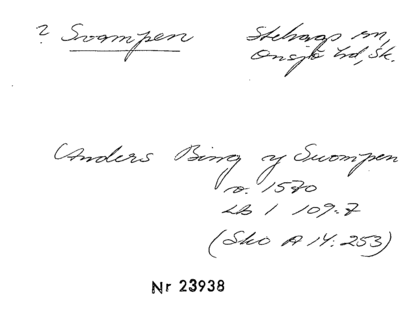 ? Svampen Stehags sn,
Onsjö hd, Sk.
Anders Bing y Swompen
o. 1570
LB 1 109:7
(Sko A 14:253)
Nr 23938